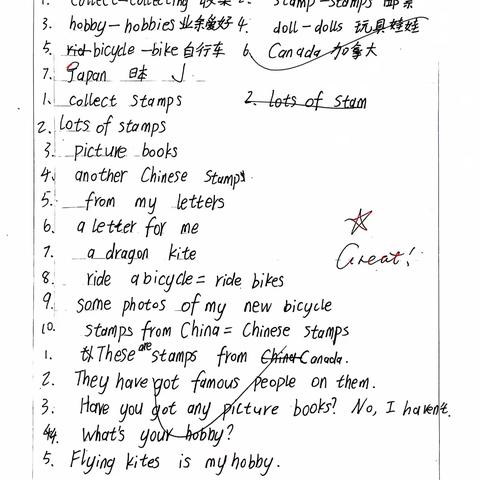 1. collect-collecting 收集 2. stamp-stamps 邮票
3. hobby-hobbies 业余爱好 4. doll-dolls 玩具娃娃
5. rid bicycle-bike 自行车 6. Canada 加拿大
7. Japan 日本
1. collect stamps 2. lots of stam
2. lots of stamps
3. picture books
4. another Chinese stamps
5. from my letters
6. a letter for me
7. a dragon kite
Great!
8. ride a bicycle = ride bikes
9. some photos of my new bicycle
10. stamps from China = Chinese stamps
1. These are stamps from China Canada.
2. They have got famous people on them.
3. Have you got any picture books? No, I haven't.
4. What's your hobby?
5. Flying kites is my hobby.